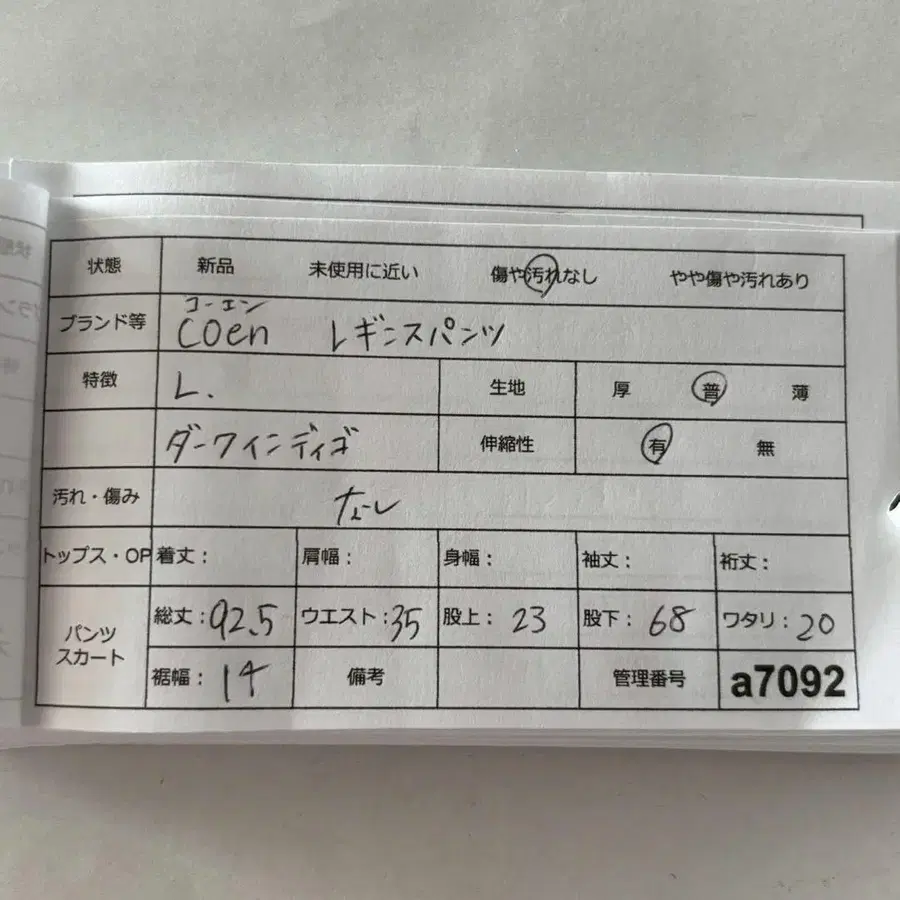 状態 新品 未使用に近い 傷や汚れなし やや傷や汚れあり
コーエン
ブランド等 coen レギンスパンツ
特徴 L. 生地 厚 普 薄
ダークインディゴ 伸縮性 有 無
汚れ・傷み なし
トップス・OP 着丈: 肩幅: 身幅: 袖丈: 裄丈:
パンツ スカート 総丈:92.5 ウエスト:35 股上: 23 股下: 68 ワタリ: 20
裾幅: 14 備考 管理番号 a7092